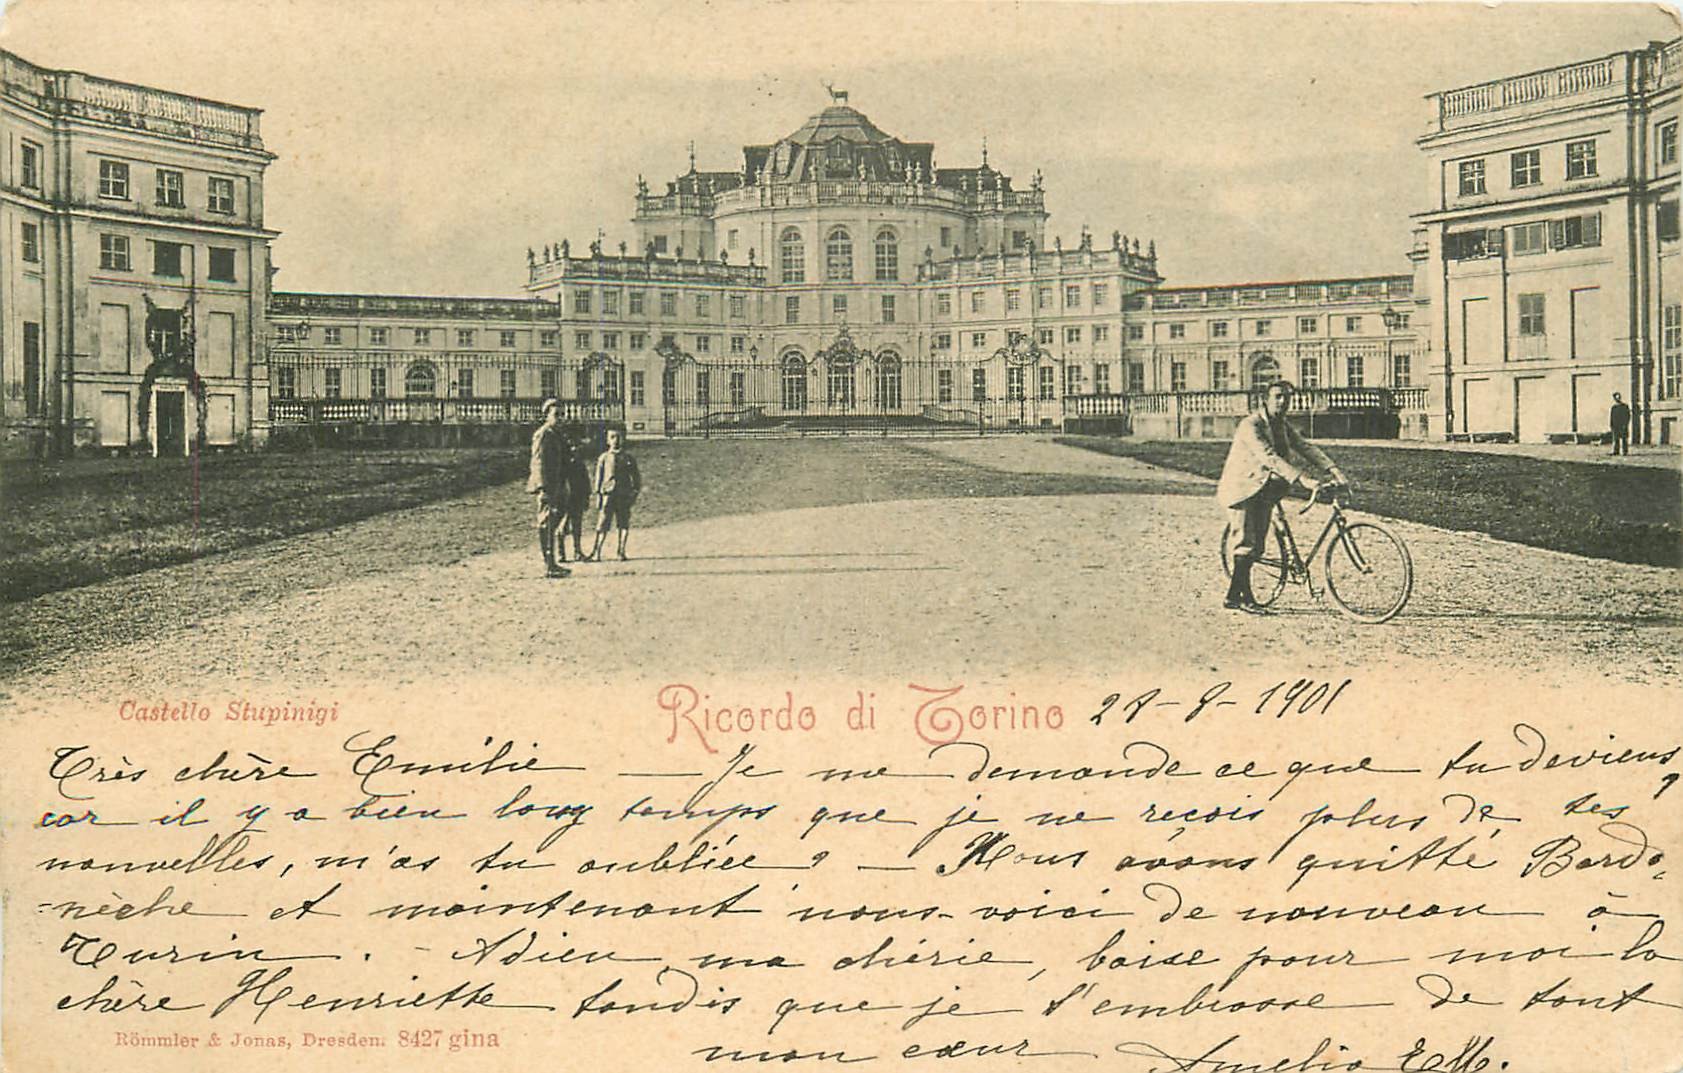 Castello Stupinigi
Ricordo di Torino 28-8-1901
Très chère Emilie — Je me demande ce que tu deviens,
car il y a bien long temps que je ne reçois plus de tes
nouvelles, m'as tu oubliée ? — Nous avons quitté Bardo-
-nèche et maintenant nous voici de nouveau à
Turin. - Adieu, ma chérie, baise pour moi la
chère Henriette tandis que je t'embrasse de tout
mon cœur Amelia
Römmler & Jonas, Dresden. 8427 gina